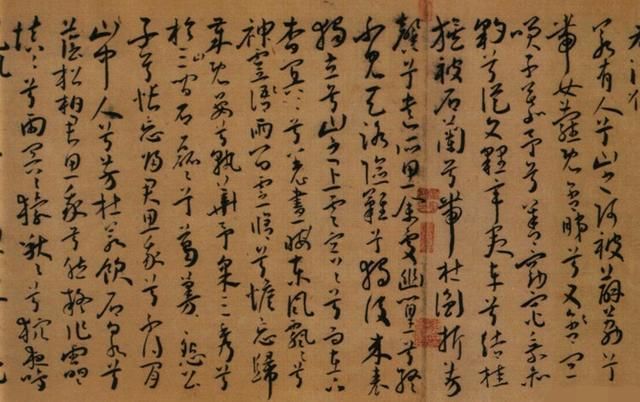 若有人兮山之阿被薜荔兮
帶女蘿既含睇兮又宜
笑子慕予兮善窈窕乘赤
豹兮從文貍辛夷車兮結桂
旗被石蘭兮帶杜衡折芳
馨兮遺所思余處幽篁兮終
不見天路險難兮獨後來表
獨立兮山之上雲容々兮而在下
杳冥々兮羌晝晦東風飄々兮
神靈雨留靈脩兮憺忘歸
歲既晏兮孰華予采三秀兮
於山間石磊々兮葛蔓々怨公
子兮悵忘歸君思我兮不得閒
山中人兮芳杜若飲石泉兮
蔭松柏君思我兮然疑作靁
填々兮雨冥々猨啾々兮狖夜鳴